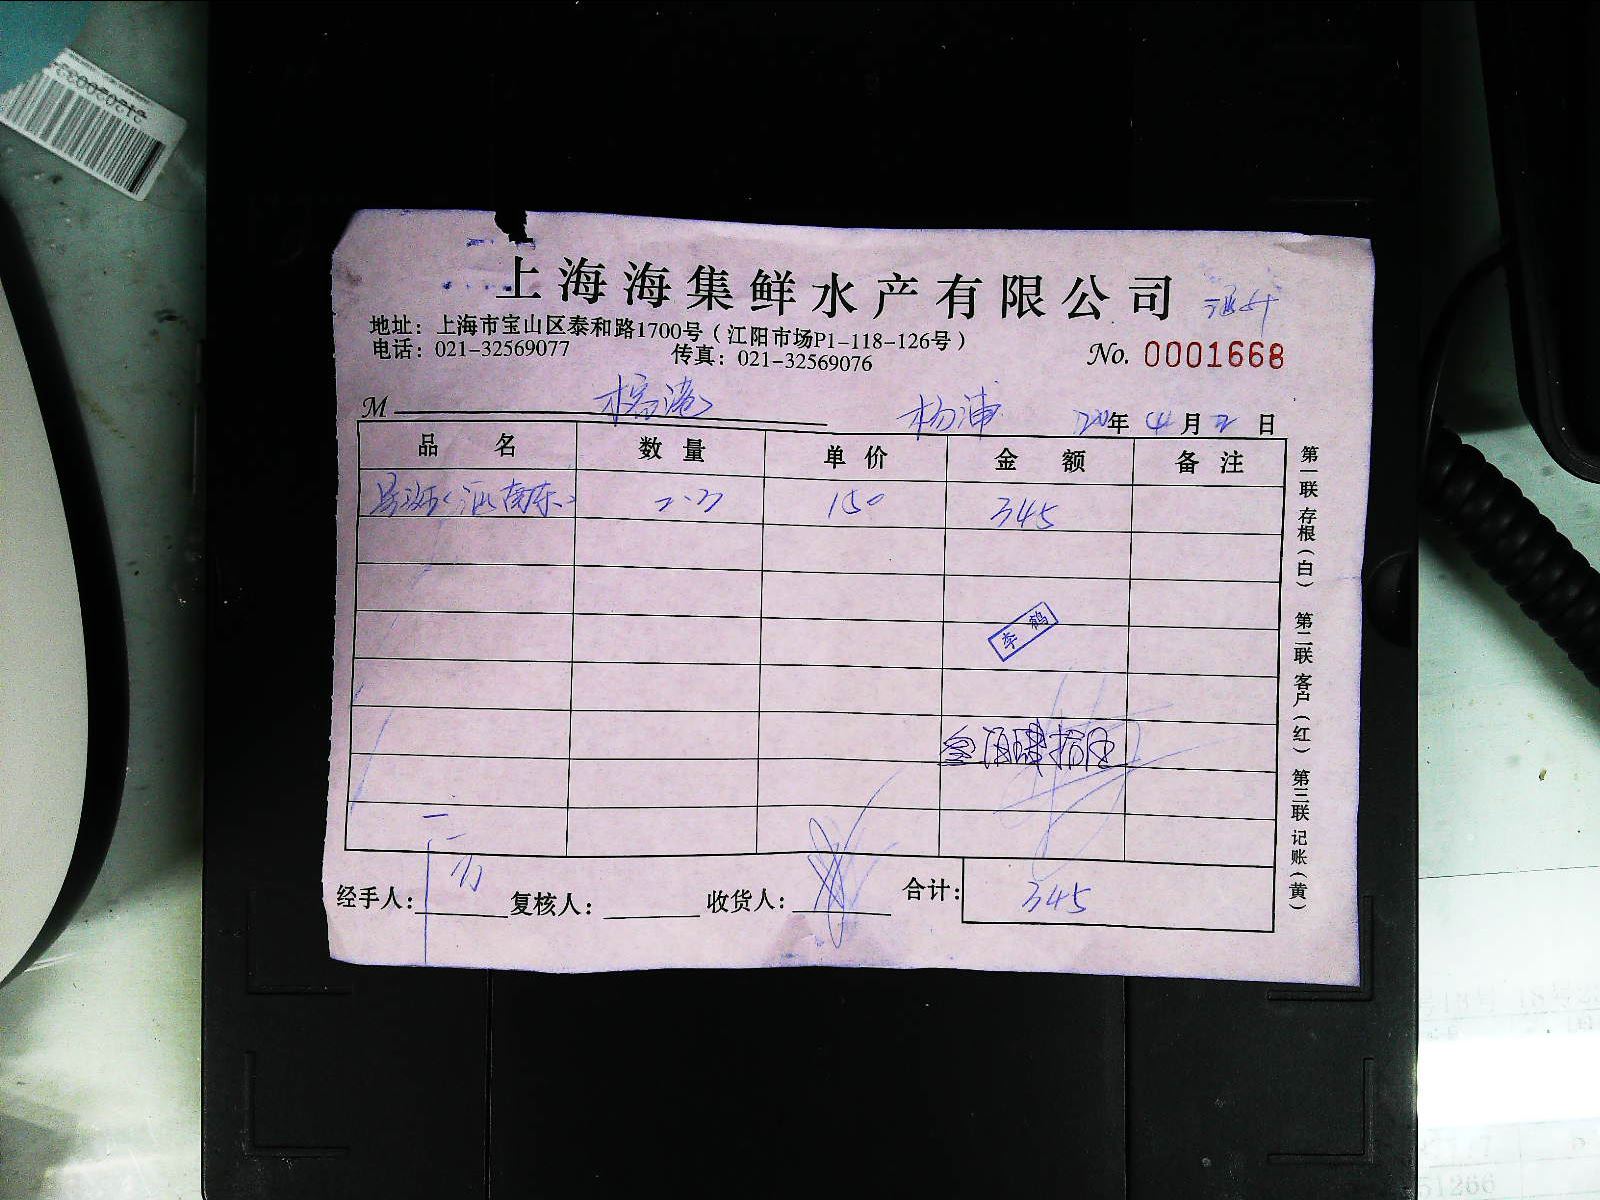 上海海集鲜水产有限公司
地址：上海市宝山区泰和路1700号（江阳市场P1-118-126号）
电话：021-32569077 传真：021-32569076
No. 0001668
M 杨浦 年 4月2日
品 名 数 量 单 价 金 额 备 注
2.3 150 345
李 鹤
叁佰肆拾伍
经手人： 复核人： 收货人： 合计： 345
第一联 存根（白） 第二联 客户（红） 第三联 记账（黄）